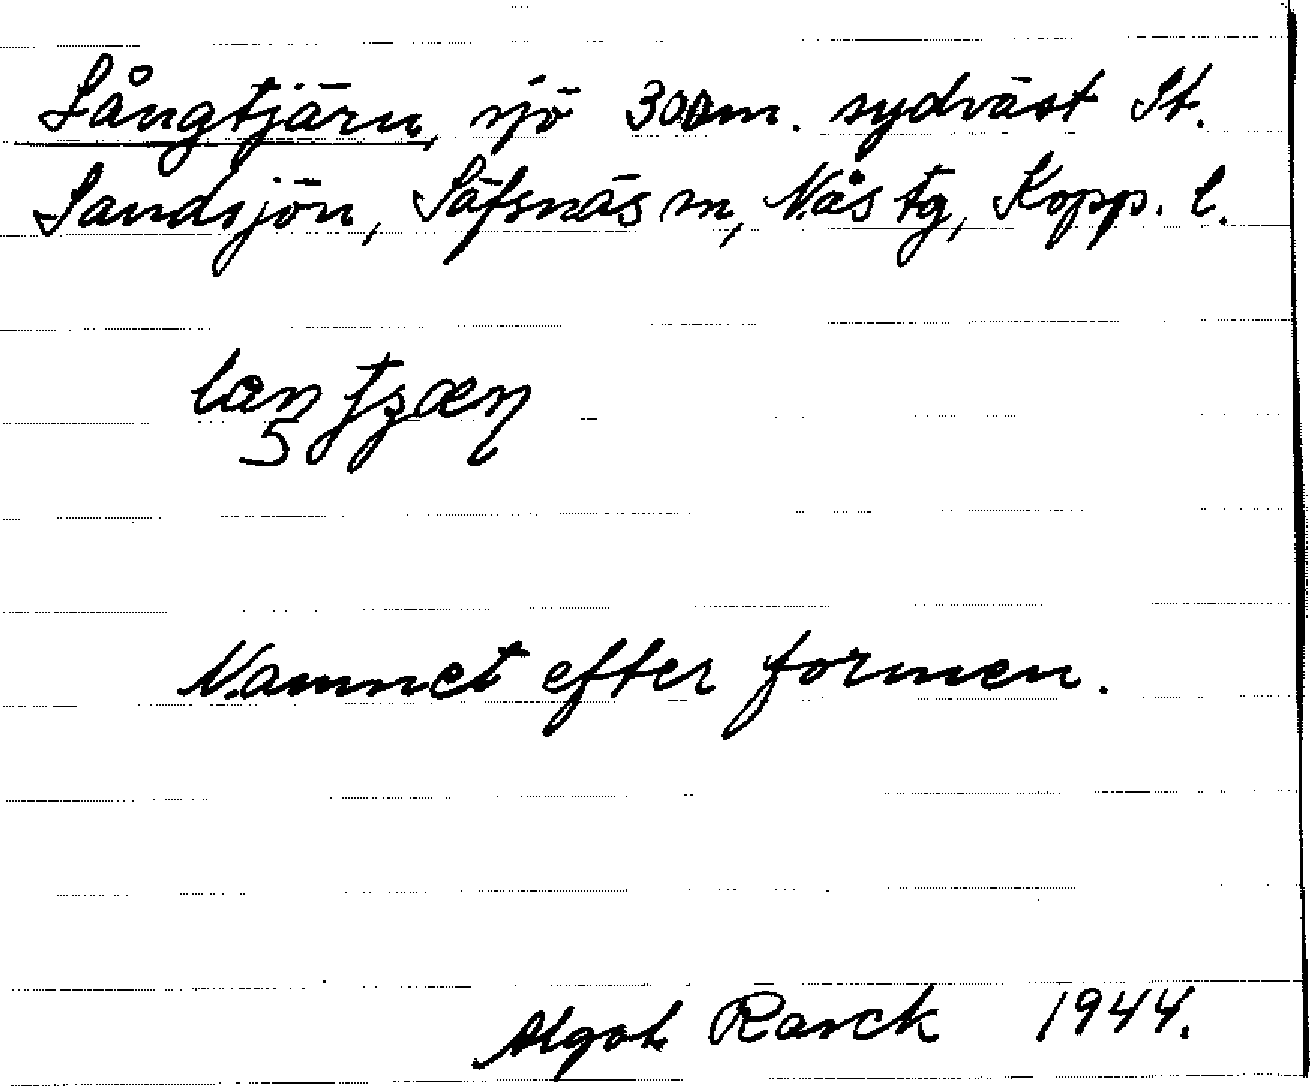 Långtjärn, sjö 300m. sydväst St.
Sandsjön, Säfsnäs sn, Nås tg, Kopp. l.
Namnet efter formen.
Algot Rarck 1944.